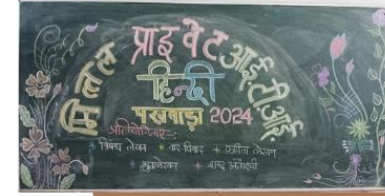 मित्तल प्राइवेट आई.टी.आई.
हिन्दी
पखवाड़ा 2024
प्रतियोगिताएं:-
+ निबन्ध लेखन + वाद विवाद + कविता लेखन
+ श्रुतलेखन + शब्द अंताक्षरी